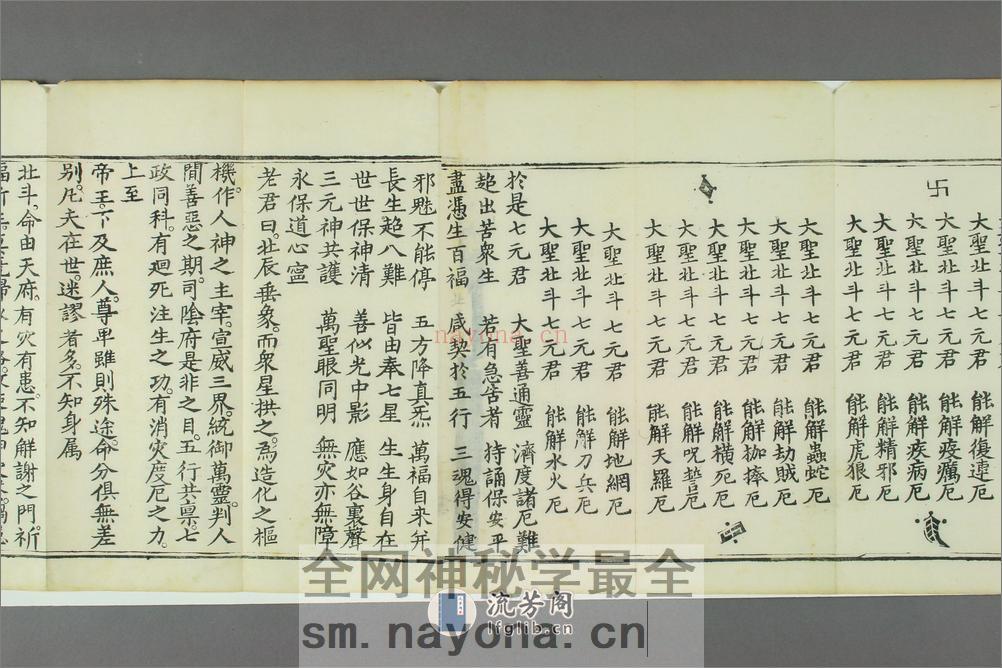 大聖北斗七元君 能解復連厄
大聖北斗七元君 能解疫癘厄
大聖北斗七元君 能解疾病厄
大聖北斗七元君 能解精邪厄
大聖北斗七元君 能解虎狼厄
卐
大聖北斗七元君 能解蟲蛇厄
大聖北斗七元君 能解劫賊厄
大聖北斗七元君 能解枷捧厄
大聖北斗七元君 能解橫死厄
大聖北斗七元君 能解呪誓厄
大聖北斗七元君 能解天羅厄
大聖北斗七元君 能解地網厄
大聖北斗七元君 能解刀兵厄
大聖北斗七元君 能解水火厄
於是七元君 大聖善通靈 濟度諸厄難
超出苦衆生 若有急告者 持誦保安平
盡憑生百福 咸契於五行 三魂得安健
邪魅不能停 五方降真炁 萬福自来并
長生超八難 皆由奉七星 生生身自在
世世保神清 善似光中影 應如谷裏聲
三元神共護 萬聖眼同明 無灾亦無障
永保道心寧
老君曰。北辰垂象。而衆星拱之。爲造化之樞
機。作人神之主宰。宣威三界。統御萬靈。判人
間善惡之期。司陰府是非之目。五行共禀。七
政同科。有迴死注生之功。有消灾度厄之力。
上至
帝王。下及庶人。尊卑雖則殊途。命分俱無差
别。凡夫在世。迷謬者多。不知身属
北斗。命由天府。有灾有患。不知解謝之門。祈
nayona.cn
全网神秘学最全
流芳阁
lfglib.cn
sm.nayona.cn